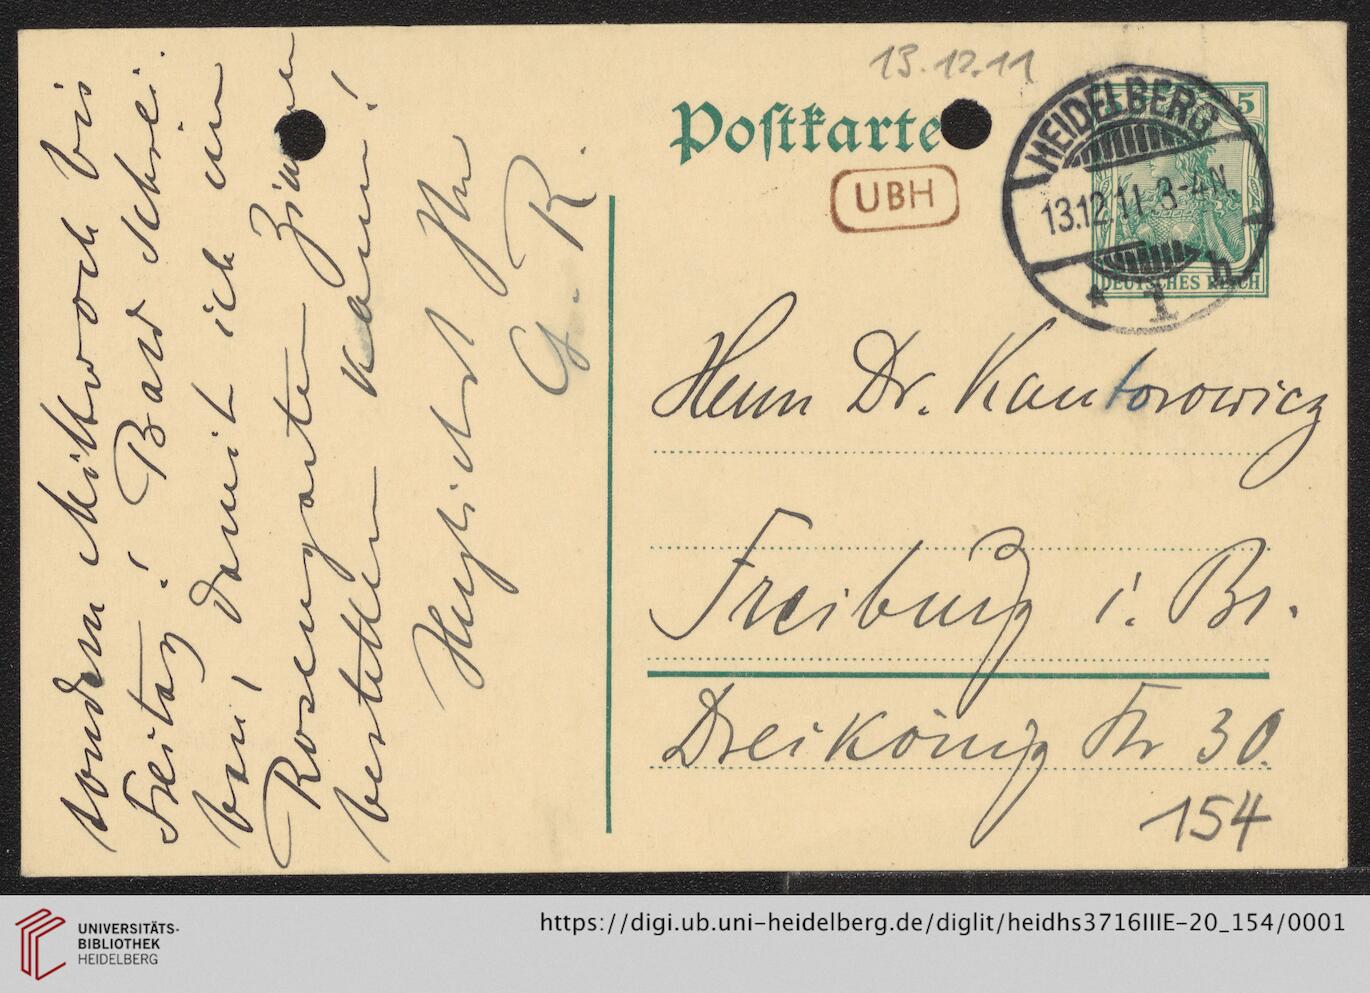 13.12.11
Postkarte
UBH
HEIDELBERG
13.12.11. 3-4N.
* 1 h
5
DEUTSCHES REICH
Herrn Dr. Kantorowicz
Freiburg i. Br.
Dreikönig Str 30.
154
sondern Mittwoch bis
Freitag! Bald schrei-
ben, damit ich ein
Rosengarten Zimmer
bestellen kann!
Herzlichst Ihr
G. R.
UNIVERSITÄTS-
BIBLIOTHEK
HEIDELBERG
https://digi.ub.uni-heidelberg.de/diglit/heidhs3716IIIE-20_154/0001